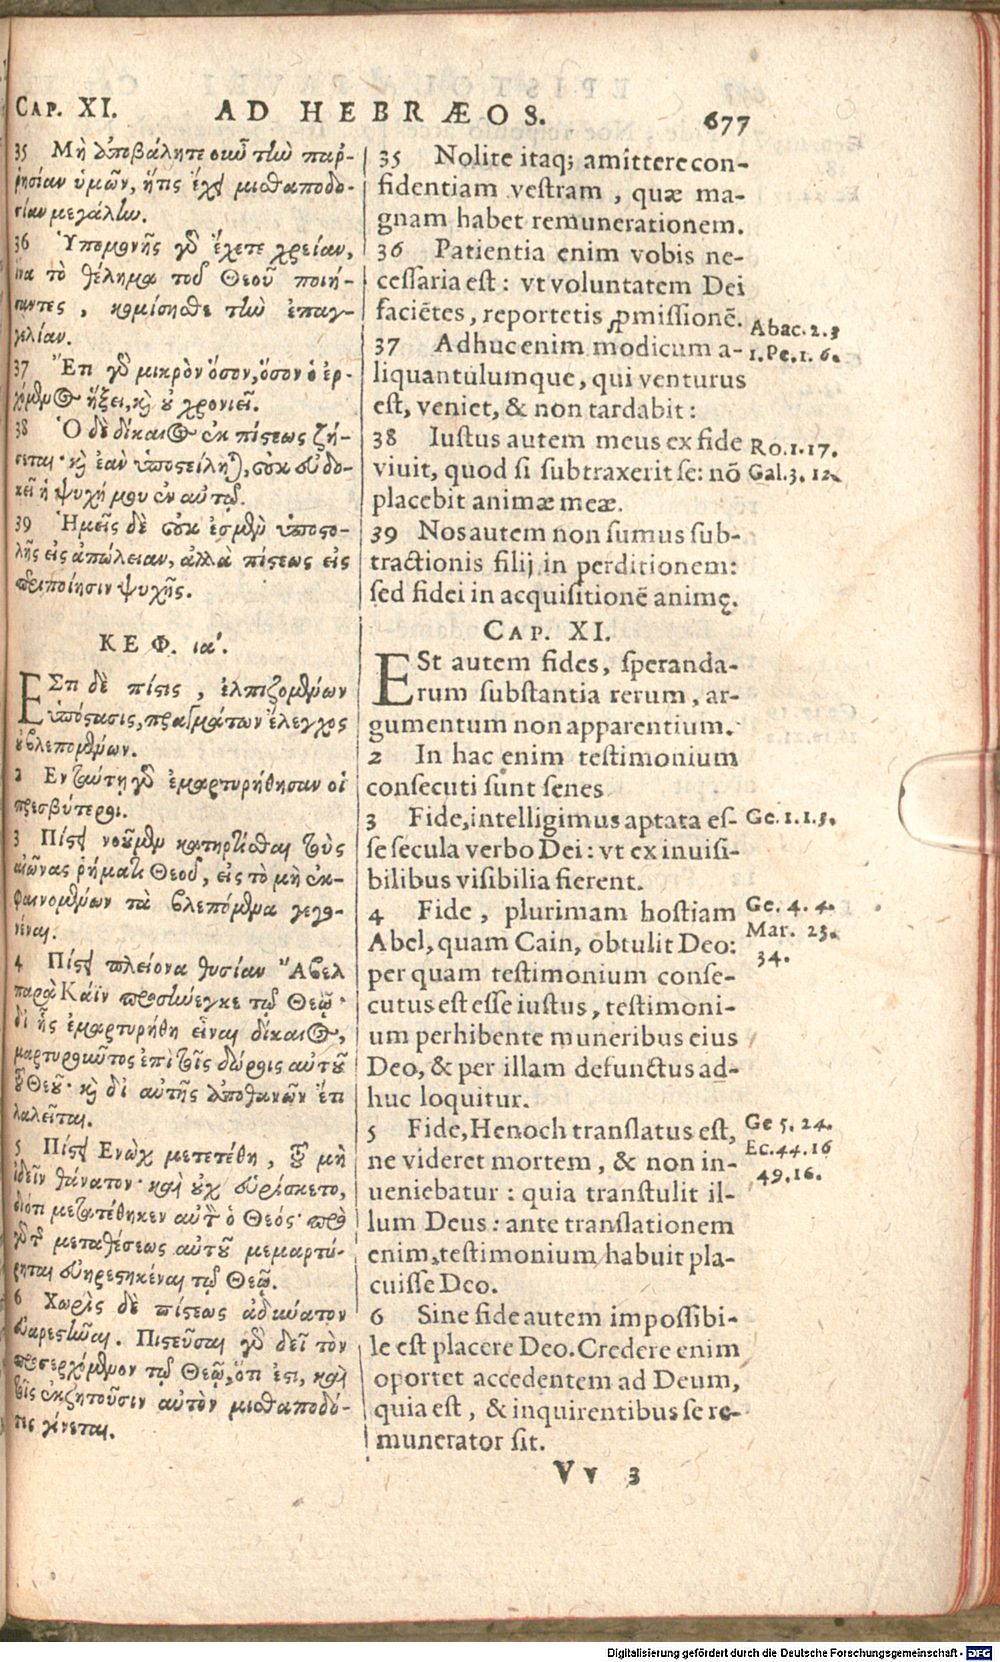 CAP. XI. AD HEBRÆOS. 677
35 Μὴ ἀποβάλητε οὖν τὴν παρ-
ρησίαν ὑμῶν, ἥτις ἔχει μισθαποδο-
σίαν μεγάλην.
36 Ὑπομονῆς γὸ ἔχετε χρείαν,
ἵνα τὸ θέλημα τοῦ Θεοῦ ποιή-
σαντες, κομίσησθε τὴν ἐπαγ-
γελίαν.
37 Ἔτι γὸ μικρὸν ὅσον, ὅσον ὁ ἐρ-
χόμενος ἥξει, καὶ οὐ χρονιεῖ.
38 Ὁ δὲ δίκαιος ἐκ πίστεως ζή-
σεται· καὶ ἐὰν ὑποστείληται, οὐκ εὐδο-
κεῖ ἡ ψυχή μου ἐν αὐτῷ.
39 Ἡμεῖς δὲ οὐκ ἐσμὲν ὑποστο-
λῆς εἰς ἀπώλειαν, ἀλλὰ πίστεως εἰς
περιποίησιν ψυχῆς.
ΚΕΦ. ια'.
ΕΣτι δὲ πίστις, ἐλπιζομένων
ὑπόστασις, πραγμάτων ἔλεγχος
οὐ βλεπομένων.
2 Εν ταύτῃ γὸ ἐμαρτυρήθησαν οἱ
πρεσβύτεροι.
3 Πίστει νοοῦμεν κατηρτίσθαι τοὺς
αἰῶνας ῥήματι Θεοῦ, εἰς τὸ μὴ ἐκ
φαινομένων τὰ βλεπόμενα γεγο-
νέναι.
4 Πίστει πλείονα θυσίαν Ἄβελ
παρὰ Κάϊν προσήνεγκε τῷ Θεῷ·
δι' ἧς ἐμαρτυρήθη εἶναι δίκαιος,
μαρτυροῦντος ἐπὶ τοῖς δώροις αὐτοῦ
τοῦ Θεοῦ· καὶ δι' αὐτῆς ἀποθανὼν ἔτι
λαλεῖται.
5 Πίστει Ενὼχ μετετέθη, τοῦ μὴ
ἰδεῖν θάνατον· καὶ οὐχ εὑρίσκετο,
διότι μετατέθηκεν αὐτὸν ὁ Θεός· πρὸ
γὸ τῆς μεταθέσεως αὐτοῦ μεμαρτύ-
ρηται εὐηρεστηκέναι τῷ Θεῷ.
6 Χωρὶς δὲ πίστεως ἀδύνατον
εὐαρεστῆσαι. Πιστεῦσαι γὸ δεῖ τὸν
προσερχόμενον τῷ Θεῷ, ὅτι ἔστι, καὶ
τοῖς ἐκζητοῦσιν αὐτὸν μισθαποδό-
της γίνεται.
35 Nolite itaq; amittere con-
fidentiam vestram, quæ ma-
gnam habet remunerationem.
36 Patientia enim vobis ne-
cessaria est: vt voluntatem Dei
faciẽtes, reportetis ꝓmissionẽ.
37 Adhuc enim modicum a-
liquantulumque, qui venturus
est, veniet, & non tardabit:
38 Iustus autem meus ex fide
viuit, quod si subtraxerit se: nõ
placebit animæ meæ.
39 Nos autem non sumus sub-
tractionis filij in perditionem:
sed fidei in acquisitionẽ animę.
CAP. XI.
ESt autem fides, speranda-
rum substantia rerum, ar-
gumentum non apparentium.
2 In hac enim testimonium
consecuti sunt senes
3 Fide, intelligimus aptata es-
se secula verbo Dei: vt ex inuisi-
bilibus visibilia fierent.
4 Fide, plurimam hostiam
Abel, quam Cain, obtulit Deo:
per quam testimonium conse-
cutus est esse iustus, testimoni-
um perhibente muneribus eius
Deo, & per illam defunctus ad-
huc loquitur.
5 Fide, Henoch translatus est,
ne videret mortem, & non in-
ueniebatur: quia transtulit il-
lum Deus: ante translationem
enim, testimonium habuit pla-
cuisse Deo.
6 Sine fide autem impossibi-
le est placere Deo. Credere enim
oportet accedentem ad Deum,
quia est, & inquirentibus se re-
munerator sit.
Abac. 2. 3
1. Pe. 1. 6.
Ro. 1. 17.
Gal. 3. 12.
Ge. 1. 1. 3.
Ge. 4. 4.
Mar. 23.
34.
Ge 5. 24.
Ec. 44. 16
49. 16.
Vv 3
Digitalisierung gefördert durch die Deutsche Forschungsgemeinschaft - DFG